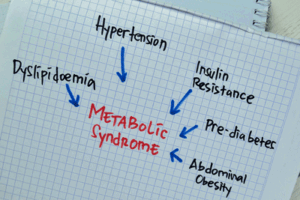 Hypertension
Dyslipidaemia
Insulin
Resistance
METABOLIC
Syndrome
Pre-diabetes
Abdominal
Obesity